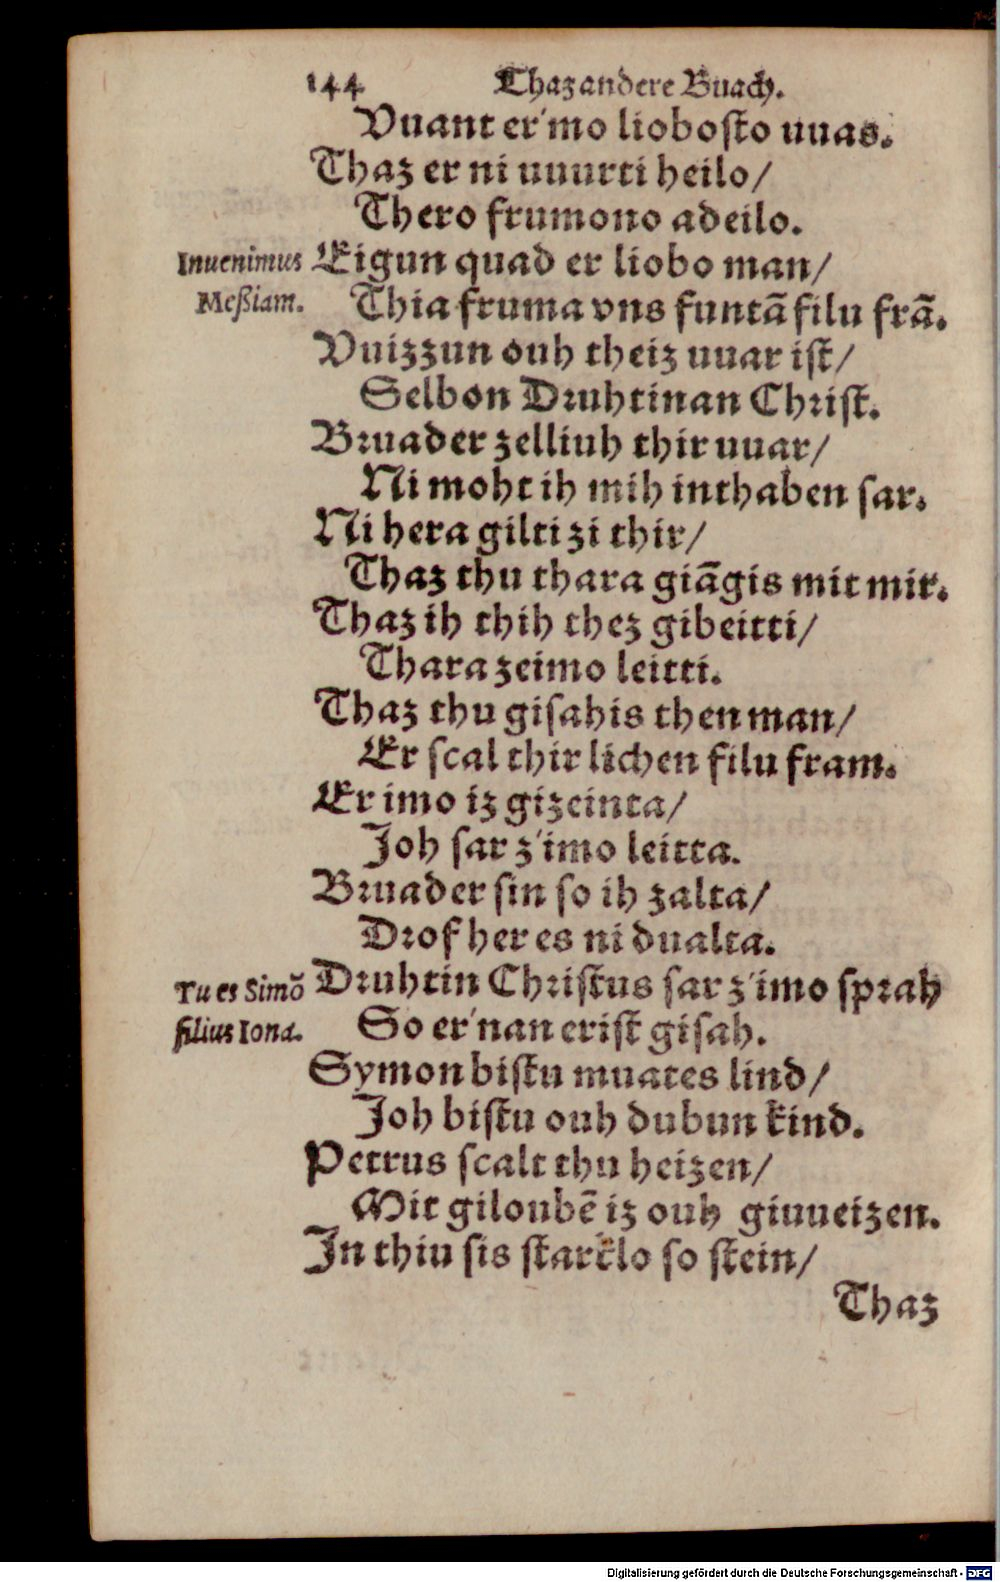 144 Thaz andere Buach.
Vuant er'mo lioboſto uuas.
Thaz er ni uuurti heilo/
Thero frumono adeilo.
Inuenimus Eigun quad er liobo man/
Meßiam. Thia fruma vns funtā filu frā.
Vuizzun ouh theiz uuar iſt/
Selbon Druhtinan Chriſt.
Bruader zelliuh thir uuar/
Ni moht ih mih inthaben ſar.
Ni hera gilti zi thir/
Thaz thu thara giāgis mit mir.
Thaz ih thih thez gibeitti/
Thara zeimo leitti.
Thaz thu giſahis then man/
Er ſcal thir lichen filu fram.
Er imo iz gizeinta/
Joh ſar z'imo leitta.
Bruader ſin ſo ih zalta/
Drof her es ni dualta.
Tu es Simō Druhtin Chriſtus ſar z'imo ſprah
filius Iona. So er'nan eriſt giſah.
Symon biſtu muates lind/
Joh biſtu ouh dubun kind.
Petrus ſcalt thu heizen/
Mit giloubē iz ouh giuueizen.
In thiu ſis ſtarklo ſo ſtein/
Thaz
Digitalisierung gefördert durch die Deutsche Forschungsgemeinschaft - DFG